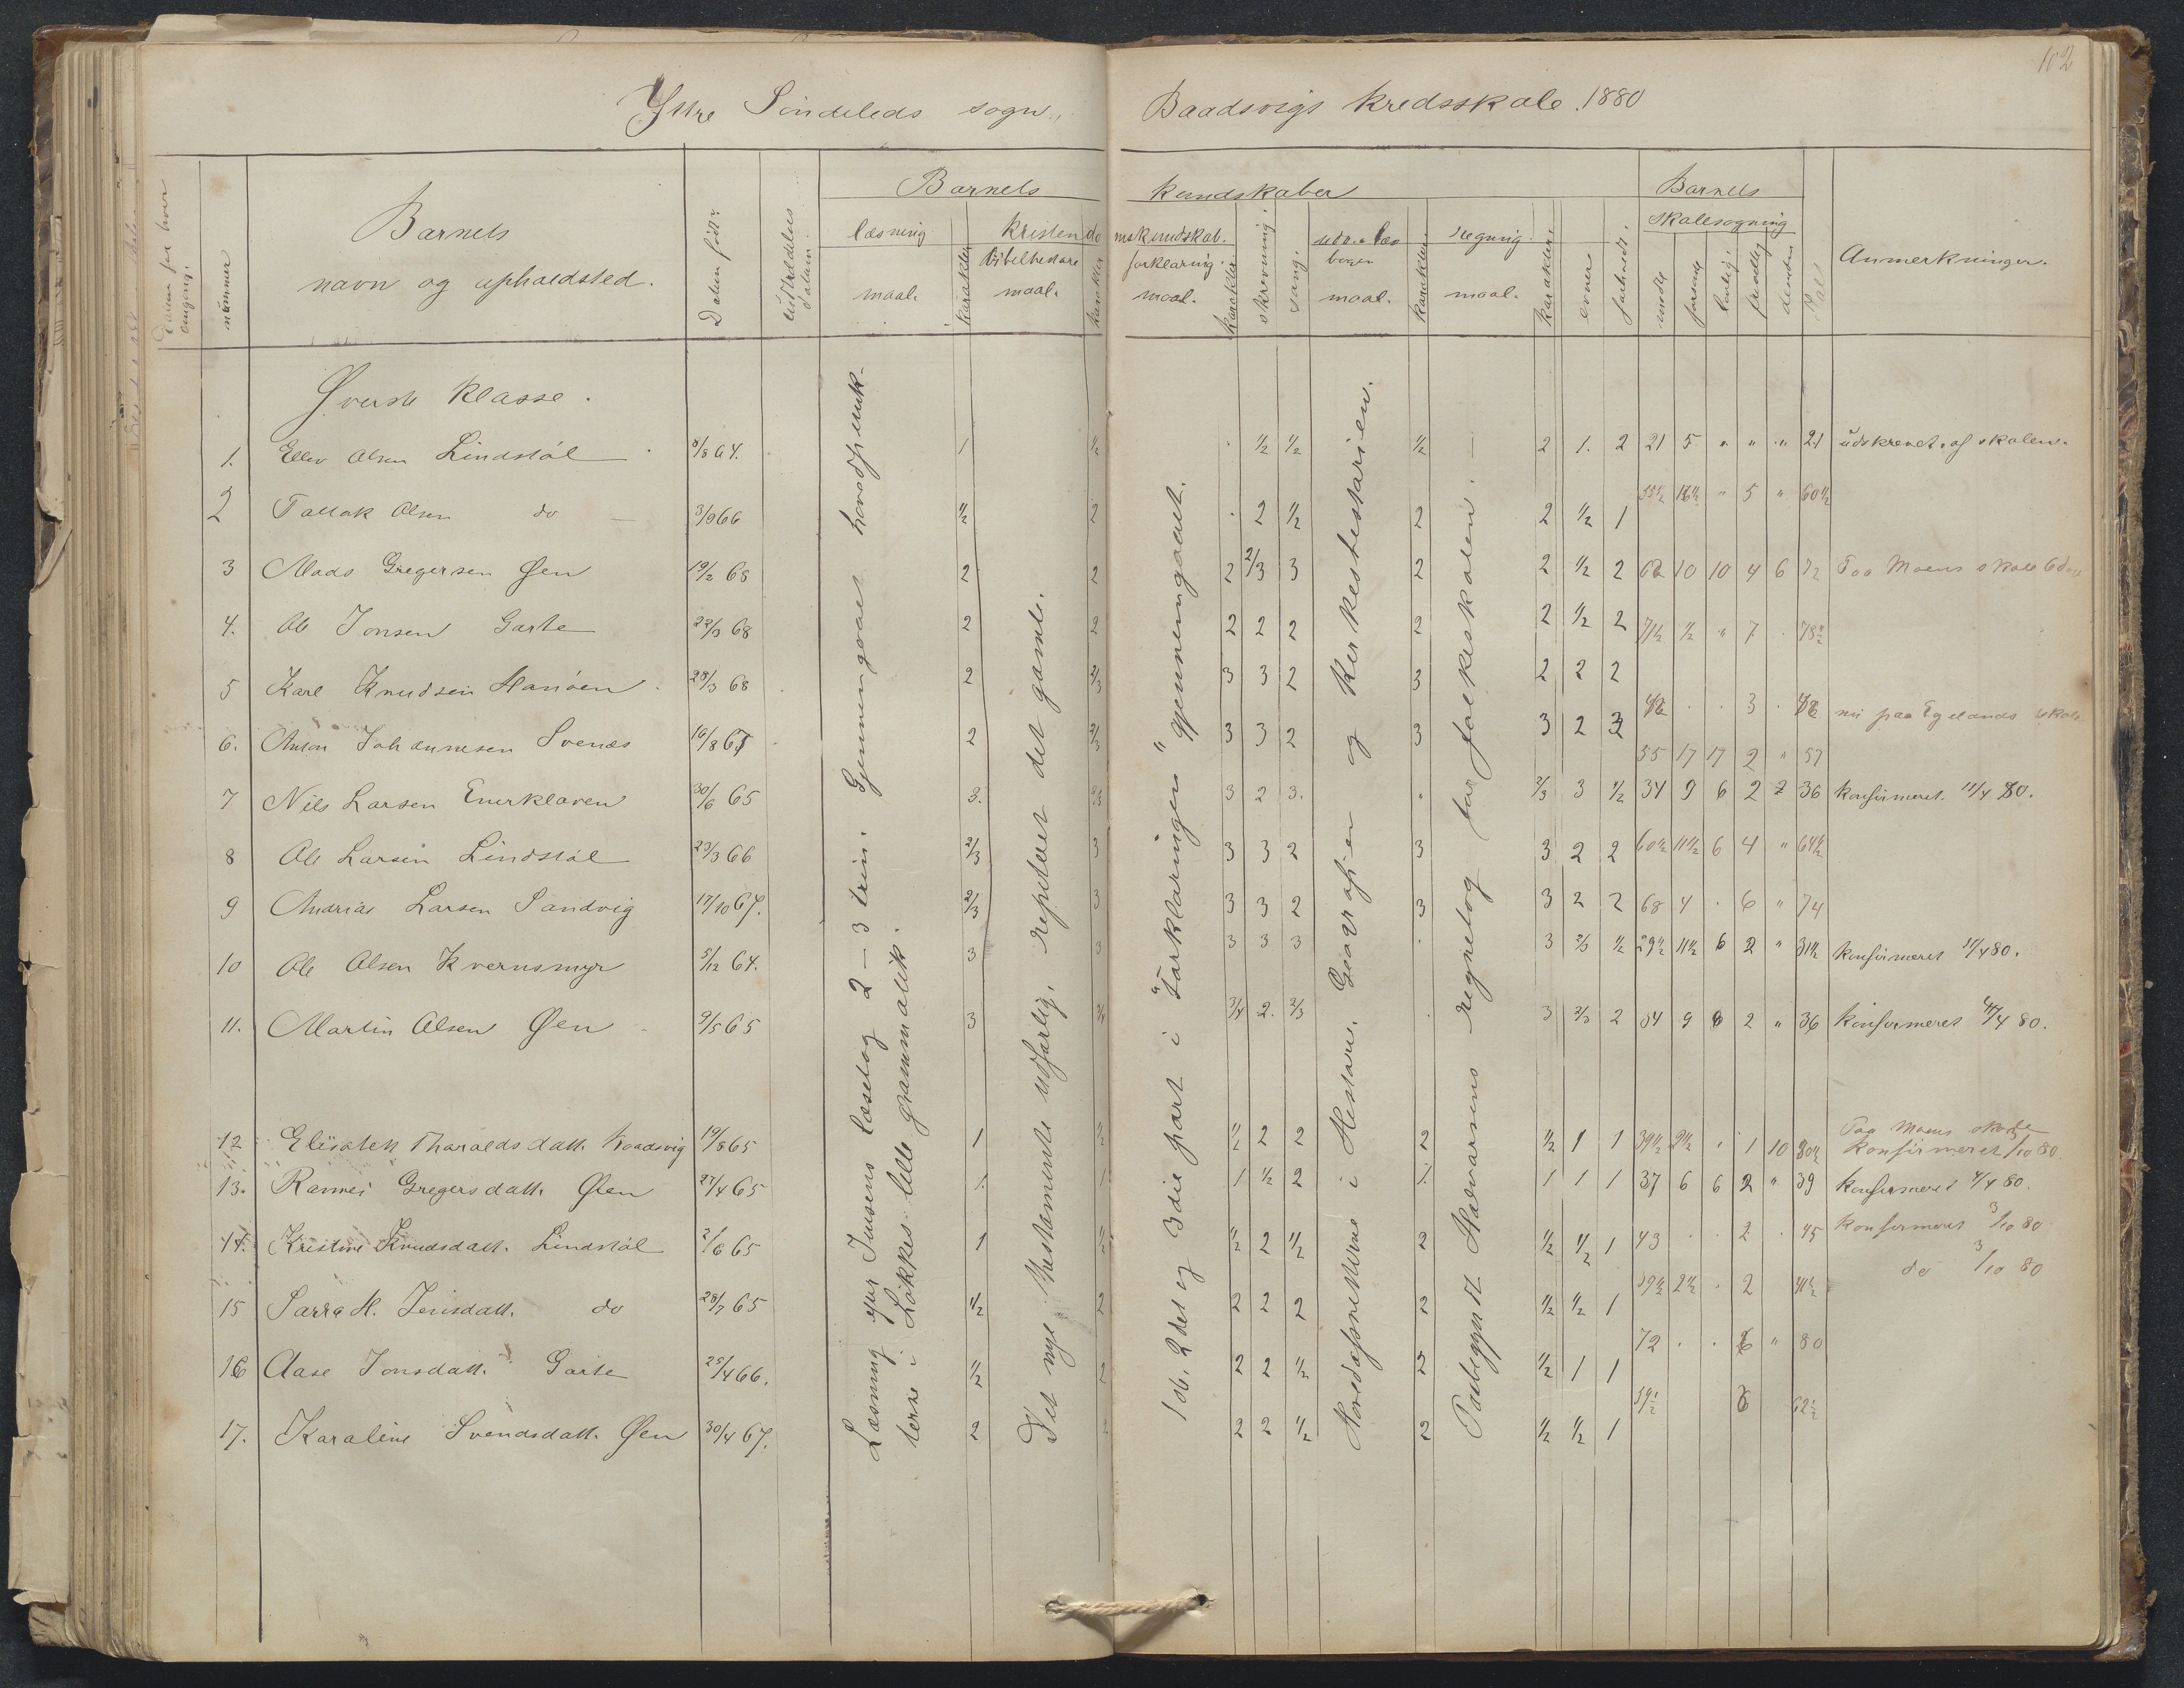 102
Yttre Söndeleds sogn.
Baadsvigs kredsskole. 1880
Barnets
kundskaber
Barnets
Barnets
navn og opholdsted.
nümmer
Datum født
læsning
kristendo
mskundskab.
skrivning
sang.
regning
evner
forhold
skolesøgning
Anmerkninger.
maal.
karakter
bibelhistorie
maal.
karakter
forklaring.
maal.
karakter
maal.
karakter
maal.
karakter
Øverste klasse.
Læsning efter Jensens læsebog 2–3 trin. Gjennemgaaet hovedpunk-
terne i Løkkes lille grammatik.
Det nye testamente udførlig, repeteret det gamle.
1ste, 2det og 3die part i "Forklaringen" gjennemgaaet.
Hovedafsnitterne i Historie, Geografien og Kirkehistorien.
Paabegyndt Halvorsens regnebog for folkeskolen.
1. Ellev Olsen Lindstøl 5/8 64. 1 1/2 1/2 1/2 1/2 2 1. 2 21 5 " " " 21 üdskrevet af skolen.
2 Tallak Olsen do 3/9 66 1/2 2 2 1/2 2 2 1/2 1 55 1/2 16 1/2 " 5 " 60 1/2
3 Mads Gregersen Øen 19/2 68 2 2 2 2/3 3 2 2 1/2 2 62 10 10 4 6 72 Paa Moens skole 6 dage
4. Ole Jonsen Garte 22/3 68 2 2 2 2 2 2 2 1/2 2 71 1/2 1/2 " 7 . 78 1/2
5 Karl Knudsen Hanøen 28/3 68 2 2/3 3 3 2 3 2 2 2 . . 3 . nu paa Egelands skole
6. Anton Johannesen Svenæs 16/8 67 2 2/3 3 3 2 3 3 2 3 55 17 17 2 " 57
7 Nils Larsen Enerkleven 30/6 65 3. 2/3 3 2 3. . 2/3 3 1/2 34 9 6 2 2 36 konfirmeret 11/4 80.
8 Ole Larsen Lindstøl 23/3 66 2/3 3 3 3 2 3 3 2 2 60 1/2 11 1/2 6 4 " 64 1/2
9 Andrias Larsen Sandvig 17/10 67. 2/3 3 3 3 2 3 3 2 2 68 4 . 6 " 74
10 Ole Olsen Kvernsmyr 5/12 64. 3 3 3 3 3 . 3 2/3 1/2 29 1/2 11 1/2 6 2 " 31 1/2 konfirmeret 11/4 80.
11. Martin Olsen Øen 9/5 65 3 3/4 3/4 2. 2/3 . 3 2/3 2 34 9 8 2 " 36 konfirmeret 11/4 80.
12 Elisabeth Tharaldsdatt. Baadsvig 19/8 65 1 1/2 1/2 2 2 2 1/2 1 1 39 1/2 2 1/2 . 1 10 Paa Moens skole
konfirmeret 3/10 80.
13. Rannei Gregersdatt. Øen 27/4 65 1. 1 1 1/2 2 1. 1 1 1 37 6 6 2 " 39 konfirmeret 11/4 80.
14. Kristine Knudsdatt. Lindstøl 2/6 65 1 1/2 1/2 2 1/2 2 1/2 1/2 1 43 . . 2 . 45 konfirmeret 3/10 80
15 Sarra M. Jensdatt. do 28/7 65 1/2 2 2 2 2 2 1/2 1/2 1 39 1/2 2 1/2 . 2 41 1/2 do 3/10 80
16 Aase Jonsdatt. Garte 25/4 66. 1/2 2 2 2 1/2 2 1/2 1 1 72 . . 8 " 80
17. Karaline Svendsdatt. Øen 30/4 67. 2 2 2 2 1/2 2 1/2 1/2 1 59 1/2 62 1/2